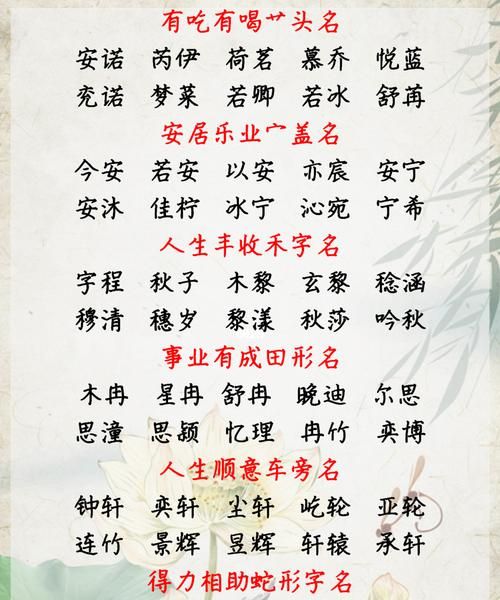 有吃有喝艹头名
安诺 芮伊 荷茗 慕乔 悦蓝
兖诺 梦菜 若卿 若冰 舒苒
安居乐业宀盖名
今安 若安 以安 亦宸 安宁
安沐 佳柠 冰宁 沁宛 宁希
人生丰收禾字名
字程 秋子 木黎 玄黎 稔涵
穆清 穗岁 黎漾 秋莎 吟秋
事业有成田形名
木冉 星冉 舒冉 晚迪 尔思
思潼 思颖 忆理 冉竹 奕博
人生顺意车旁名
钟轩 奕轩 尘轩 屹轮 亚轮
连竹 景辉 昱辉 轩辕 承轩
得力相助蛇形字名